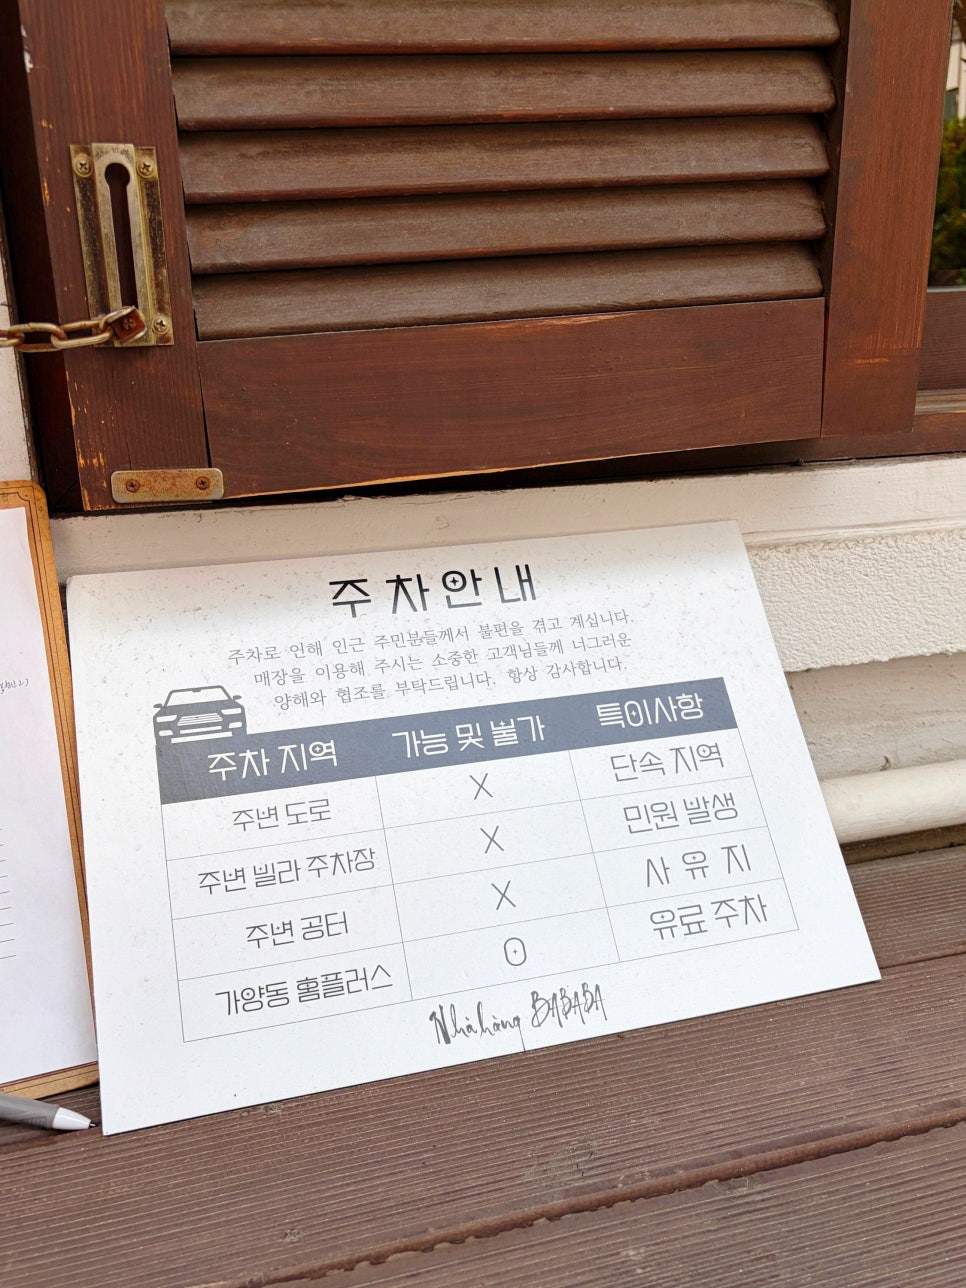 주차안내
주차로 인해 인근 주민분들께서 불편을 겪고 계십니다.
매장을 이용해 주시는 소중한 고객님들께 너그러운
양해와 협조를 부탁드립니다. 항상 감사합니다.
주차 지역 가능 및 불가 특이사항
주변 도로 X 단속 지역
주변 빌라 주차장 X 민원 발생
주변 공터 X 사 유 지
가양동 홈플러스 O 유료 주차
Nhà hàng BABABA